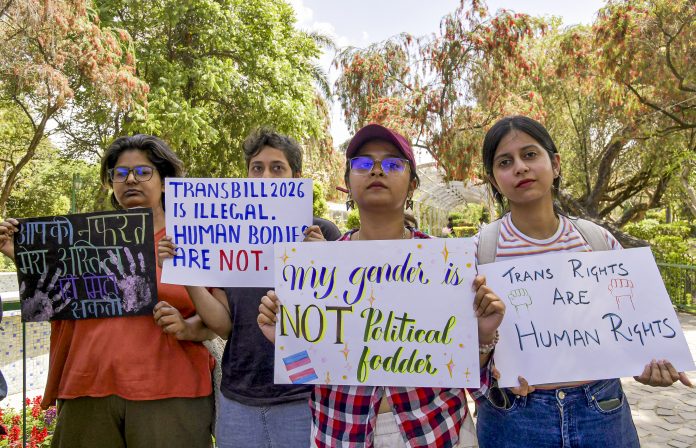 आपकी नफरत
मेरा अस्तित्व
नहीं मिटा
सकती
TRANSBILL2026
IS ILLEGAL.
HUMAN BODIES
ARE NOT.
My gender is
NOT Political
fodder
TRANS RIGHTS
ARE
HUMAN RIGHTS